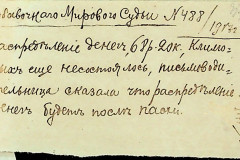 бавочнаго Мирового Судьи № 488/1917
аспредѣленіе денег 68р. 20к. Климо
ыхъ еще несостоялось, письмоводи
тельница сказала что распредѣленіе
денег будетъ послѣ пасхи.